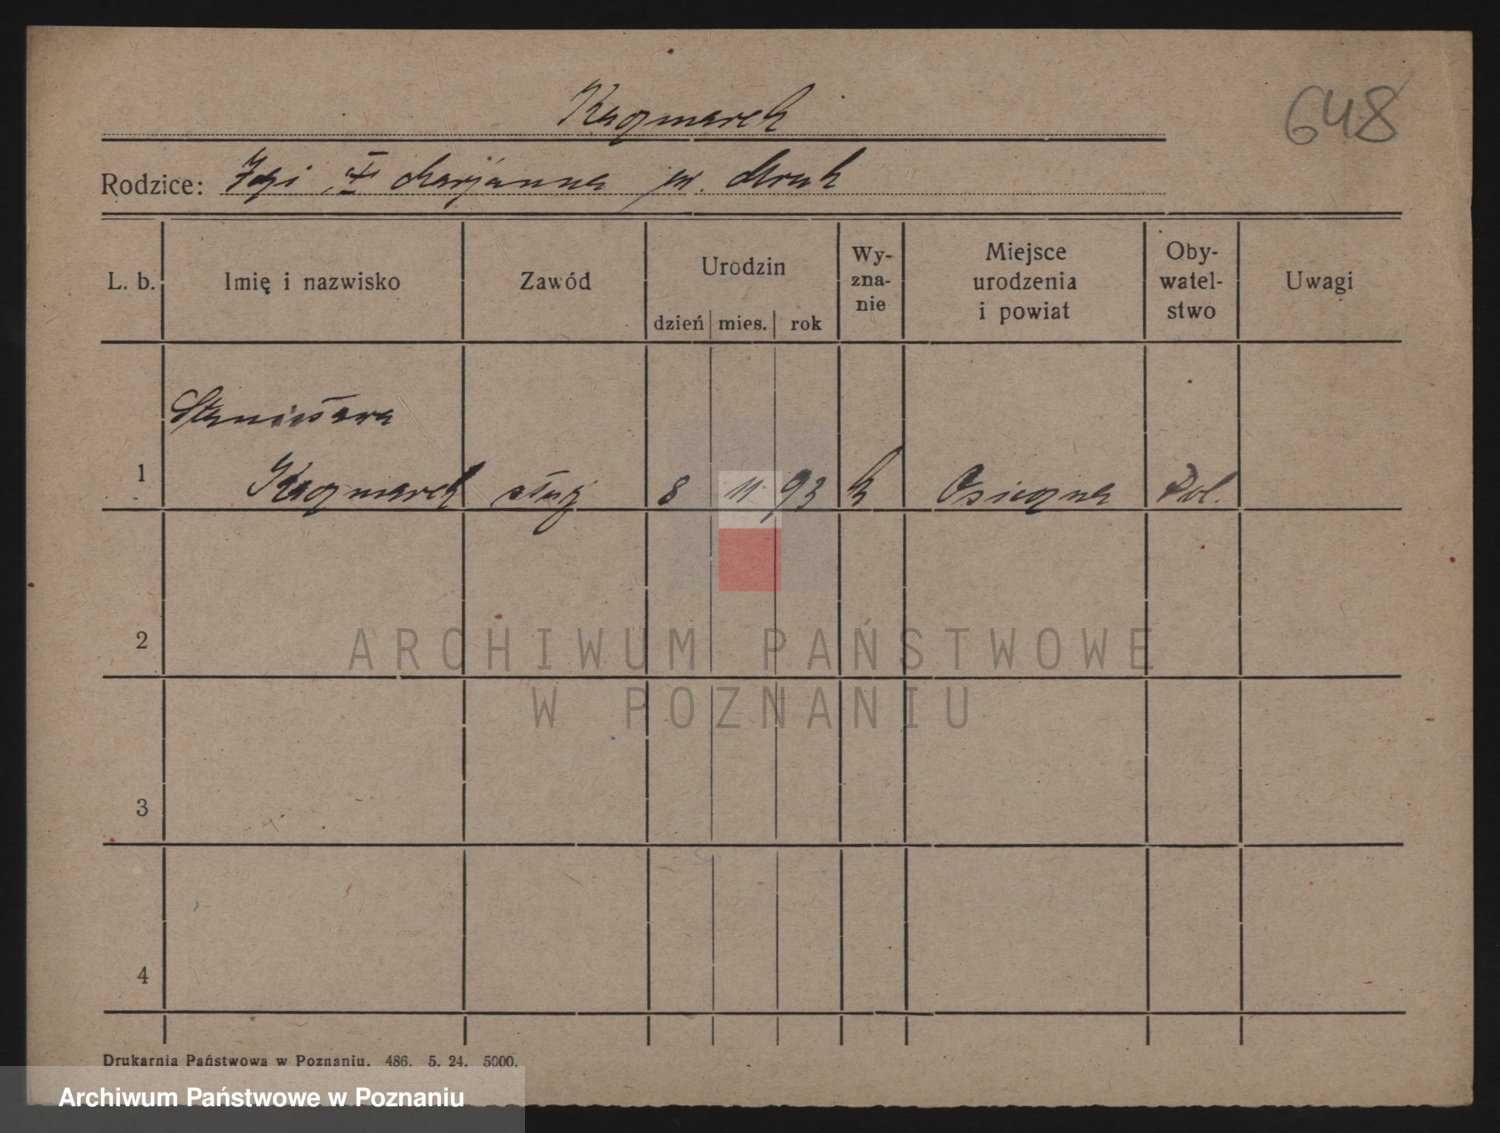 Kaczmarek
648
Rodzice: Marjanna
L. b. Imię i nazwisko Zawód Urodzin dzień mies. rok Wy-zna-nie Miejsce urodzenia i powiat Oby-watel-stwo Uwagi
Stanisława
1 Kaczmarek służ 8 11 93 k Osieczna Pol.
2
ARCHIWUM PAŃSTWOWE
W POZNANIU
3
4
Drukarnia Państwowa w Poznaniu. 486. 5. 24. 5000.
Archiwum Państwowe w Poznaniu